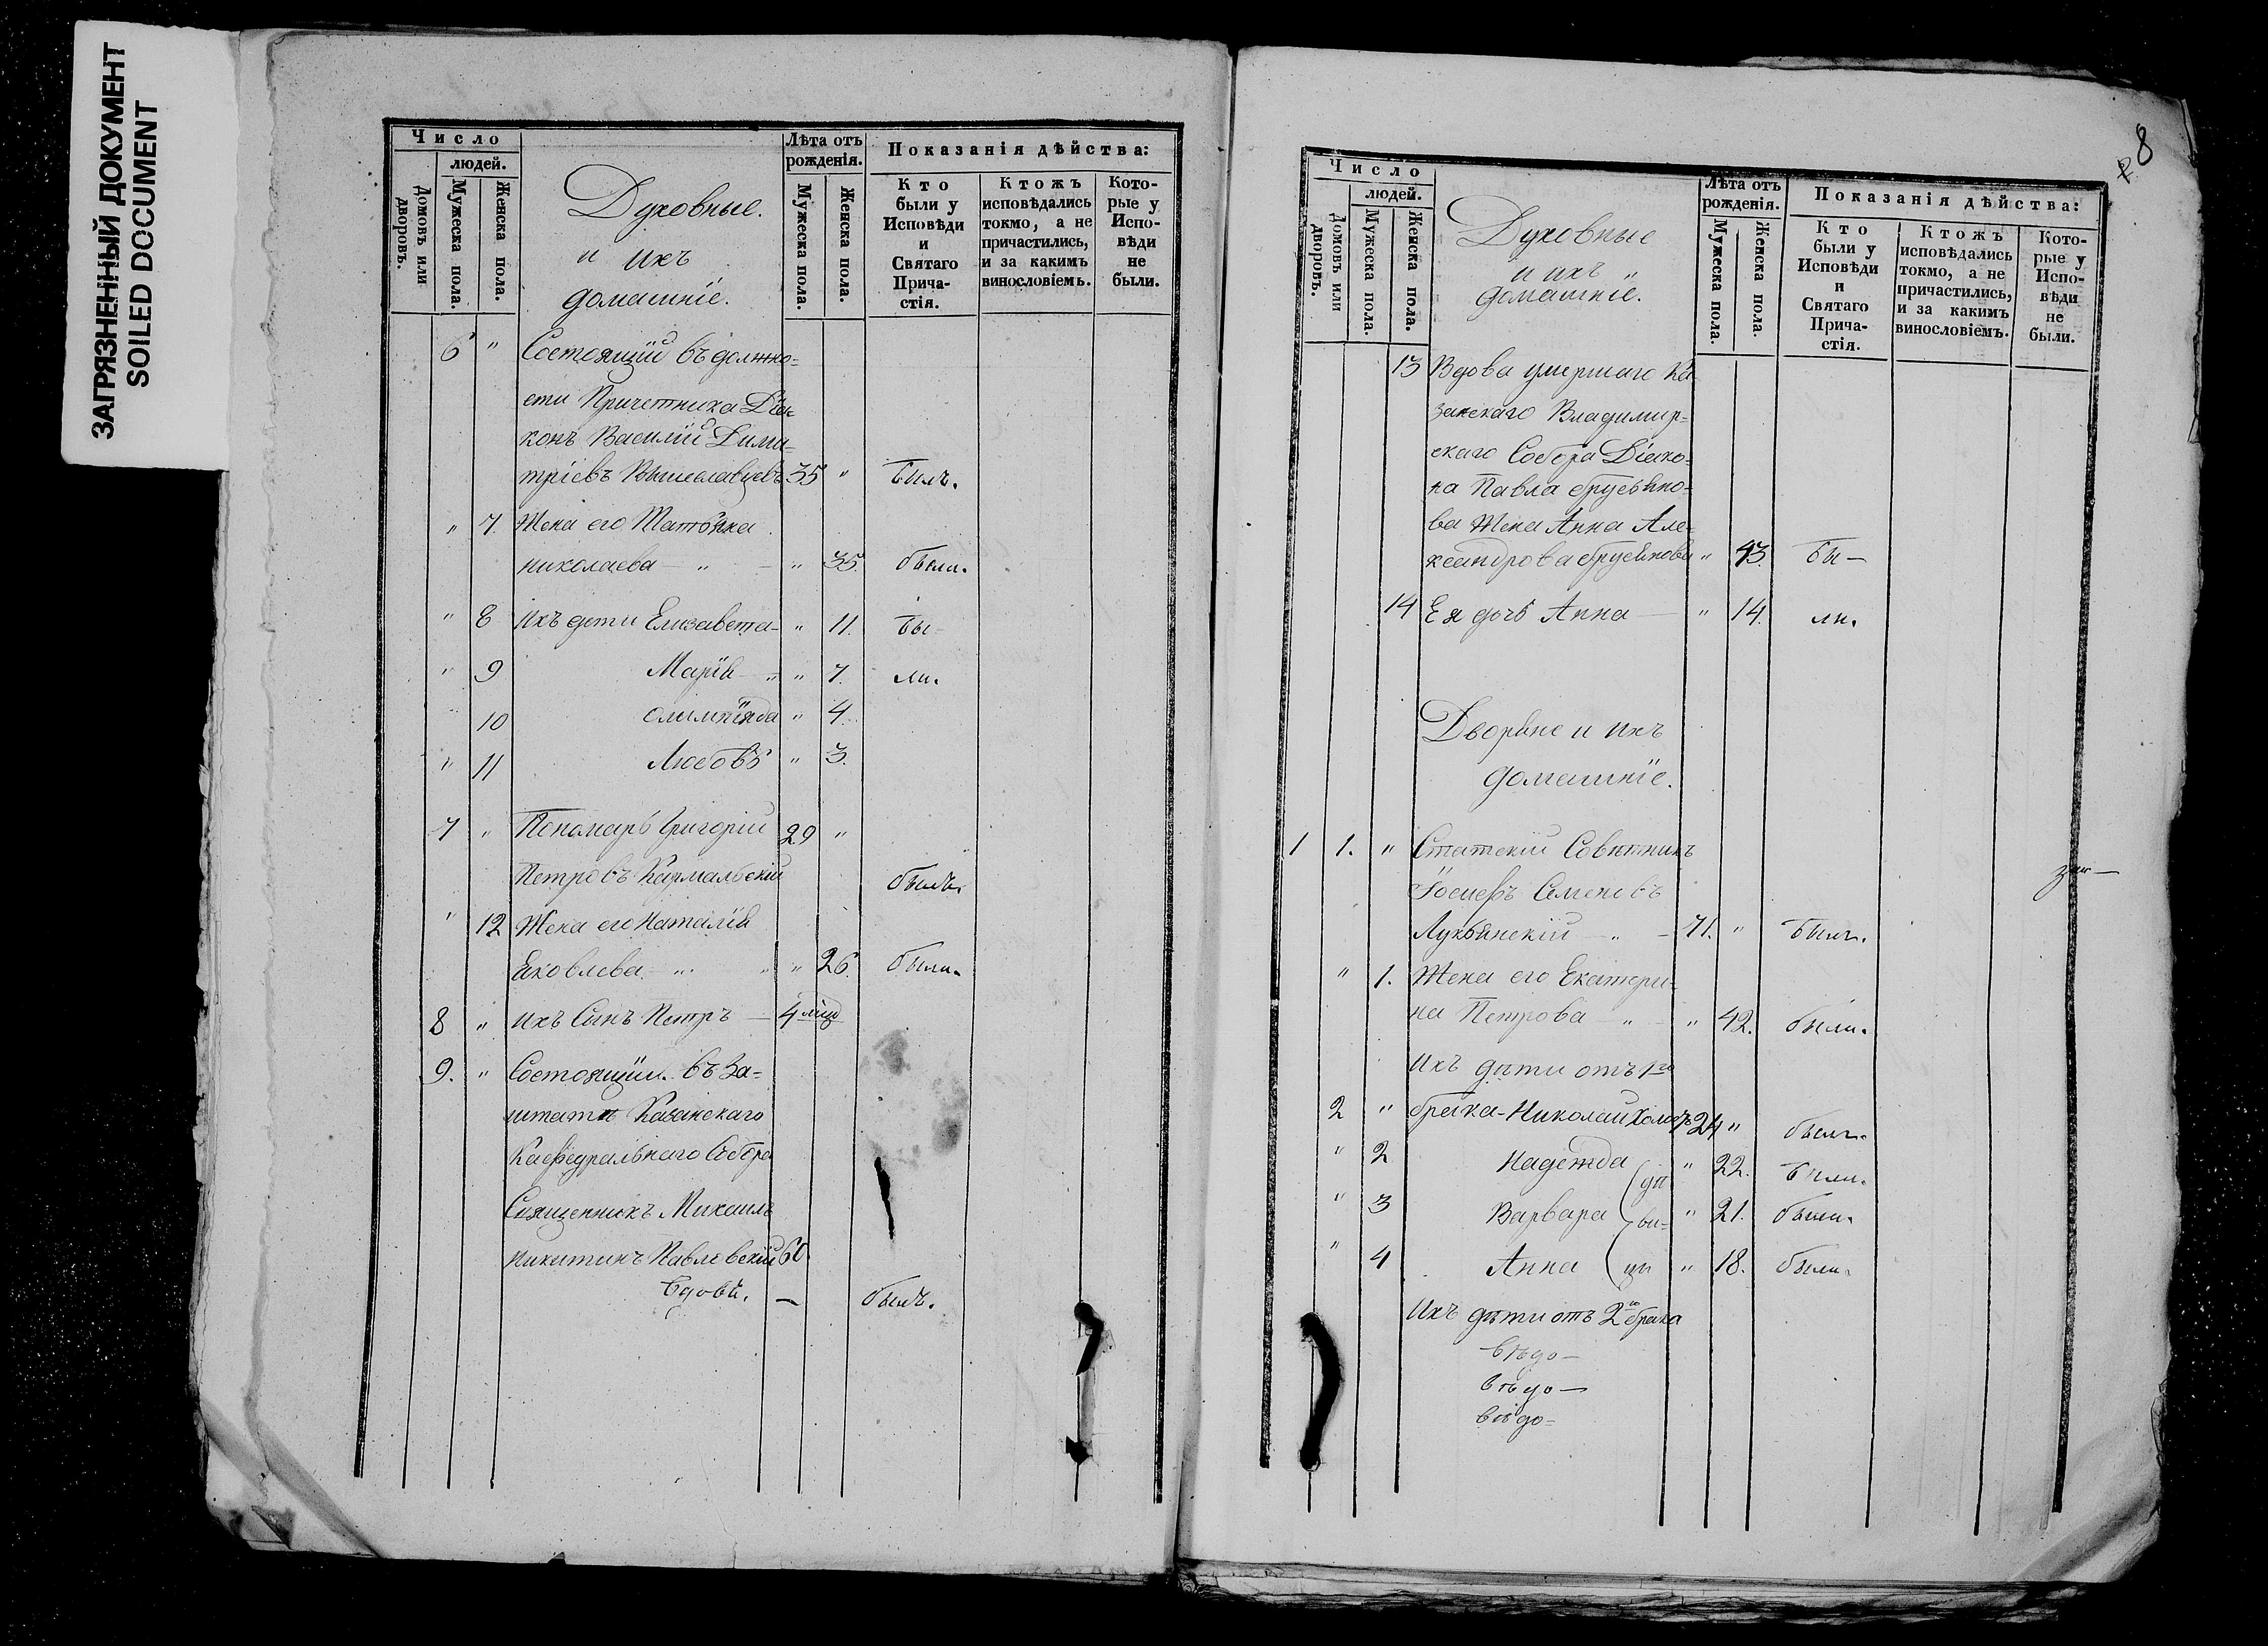 ЗАГРЯЗНЕННЫЙ ДОКУМЕНТ
SOILED DOCUMENT
Число
людей.
Домовъ или дворовъ.
Мужеска пола.
Женска пола.
Духовные.
и ихъ
домашніе.
Лѣта отъ рожденія.
Мужеска пола.
Женска пола.
Показанія дѣйства:
Кто были у Исповѣди и Святаго Прича-стія.
Ктожъ исповѣдались токмо, а не причастились, и за какимъ винословіемъ.
Кото-рые у Испо-вѣди не были.
6 " Состоящій въ должно-
сти Причетника Діа-
конъ Василій Дими-
тріевъ Вышеславцевъ 35 " былъ.
" 7. Жена его Татьяна
николаева — " — " 35. была.
" 8 ихъ дѣти Елизавета — " 11. бы-
" 9 Марія — " " 7. ли.
10 Олимпіяда " 4.
" 11 Любовь " 3.
7 " Пономарь Григорій 29 "
Петровъ Кармальскій былъ.
" 12 Жена его Наталія
Яковлева — " " " 26. была.
8 " ихъ Сынъ Петръ — 4 мѣц
9. " Состоящій въ За-
штатѣ Казанскаго
Кафедральнаго Собора
Священникъ Михаилъ
Никитинъ Павловскій 60.
вдовъ. — былъ.
8
Число
людей.
Домовъ или дворовъ.
Мужеска пола.
Женска пола.
Духовные
и ихъ
домашніе.
Лѣта отъ рожденія.
Мужеска пола.
Женска пола.
Показанія дѣйства:
Кто были у Исповѣди и Святаго Прича-стія.
Ктожъ исповѣдались токмо, а не причастились, и за какимъ винословіемъ.
Кото-рые у Испо-вѣди не были.
13 Вдова умершаго Ка-
занскаго Владимир-
скаго Собора Діако-
на Павла
ва Жена Анна Але-
ксандрова " 43. бы —
14 Ея дочь Анна — " 14. ли.
Дворяне и ихъ
домашніе.
1 1. " Статскій Совѣтникъ
Іосифъ Семеновъ
Лукьянскій — " — 71. " былъ.
" 1. Жена его Екатери-
на Петрова — " — " 42. была.
ихъ дѣти отъ 1го
2 " брака - Николай холостъ 24 " былъ.
" 2 Надежда дѣ " 22. была.
" 3 Варвара ви= " 21. была.
" 4 Анна цы " 18. была.
Ихъ дѣти отъ 2го брака